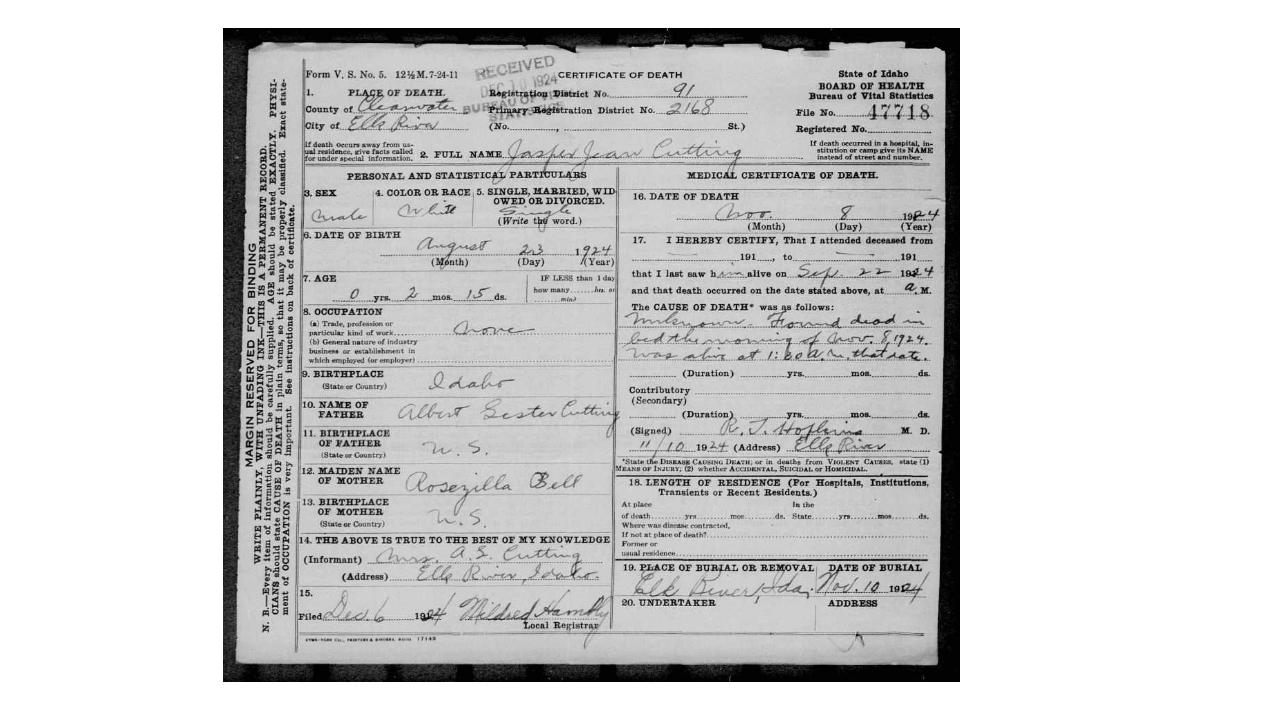 MARGIN RESERVED FOR BINDING
WRITE PLAINLY, WITH UNFADING INK—THIS IS A PERMANENT RECORD.
N. B.—Every item of information should be carefully supplied. AGE should be stated EXACTLY. PHYSI-
CIANS should state CAUSE OF DEATH in plain terms, so that it may be properly classified. Exact state-
ment of OCCUPATION is very important. See instructions on back of certificate.
Form V. S. No. 5. 12½M. 7-24-11
RECEIVED
DEC 10 1924
BUREAU OF
STATISTICS
CERTIFICATE OF DEATH
State of Idaho
BOARD OF HEALTH
Bureau of Vital Statistics
File No. 47718
Registered No.
1. PLACE OF DEATH.
County of Clearwater
City of Elk River
Registration District No. 91
Primary Registration District No. 2168
(No. , St.)
If death occurs away from us-
ual residence, give facts called
for under special information.
2. FULL NAME Jasper Jean Cutting
If death occurred in a hospital, in-
stitution or camp give its NAME
instead of street and number.
PERSONAL AND STATISTICAL PARTICULARS
3. SEX
male
4. COLOR OR RACE
White
5. SINGLE, MARRIED, WID-
OWED OR DIVORCED.
Single
(Write the word.)
6. DATE OF BIRTH
August 23 1924
(Month) (Day) (Year)
7. AGE
0 yrs. 2 mos. 15 ds.
IF LESS than 1 day
how many hrs. or
min?
8. OCCUPATION
(a) Trade, profession or
particular kind of work none
(b) General nature of industry
business or establishment in
which employed (or employer)
9. BIRTHPLACE
(State or Country) Idaho
10. NAME OF
FATHER Albert Lester Cutting
11. BIRTHPLACE
OF FATHER
(State or Country) U. S.
12. MAIDEN NAME
OF MOTHER Rosezilla Bell
13. BIRTHPLACE
OF MOTHER
(State or Country) U. S.
14. THE ABOVE IS TRUE TO THE BEST OF MY KNOWLEDGE
(Informant) Mrs. A. L. Cutting
(Address) Elk River, Idaho.
15.
Filed Dec. 6 1924 Mildred
Local Registrar
MEDICAL CERTIFICATE OF DEATH.
16. DATE OF DEATH
Nov. 8 1924
(Month) (Day) (Year)
17. I HEREBY CERTIFY, That I attended deceased from
191 , to 191
that I last saw him alive on Sep. 22 1924
and that death occurred on the date stated above, at a. M.
The CAUSE OF DEATH* was as follows:
Unknown. Found dead in
bed the morning of Nov. 8, 1924.
Was alive at 1:00 a. m. that date.
(Duration) yrs. mos. ds.
Contributory
(Secondary)
(Duration) yrs. mos. ds.
(Signed) R. T. Hopkins M. D.
11/10 1924 (Address) Elk River
*State the DISEASE CAUSING DEATH; or in deaths from VIOLENT CAUSES, state (1)
MEANS OF INJURY; (2) whether ACCIDENTAL, SUICIDAL or HOMICIDAL.
18. LENGTH OF RESIDENCE (For Hospitals, Institutions,
Transients or Recent Residents.)
At place In the
of death yrs mos ds. State yrs mos ds.
Where was disease contracted,
If not at place of death?
Former or
usual residence
19. PLACE OF BURIAL OR REMOVAL DATE OF BURIAL
Elk River, Ida. Nov. 10 1924
20. UNDERTAKER ADDRESS